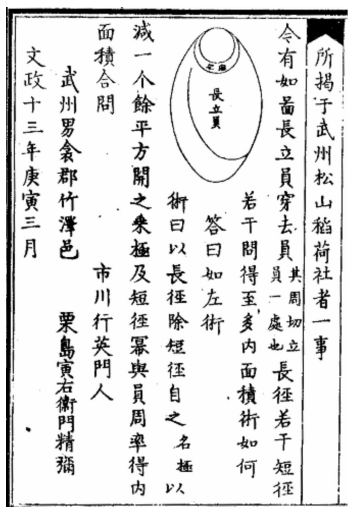 所揭于武州松山稲荷社者一事
今有如啚長立員穿去員其周切立員一處也長径若干短径
若干問得至多内面積術如何
長立員
答曰如左術
術曰以長径除短径自之名極以
減一个餘平方開之乗極及短径冪與員周率得内
面積合問
市川行英門人
武州男衾郡竹澤邑 栗島寅右衛門精彌
文政十三年庚寅三月